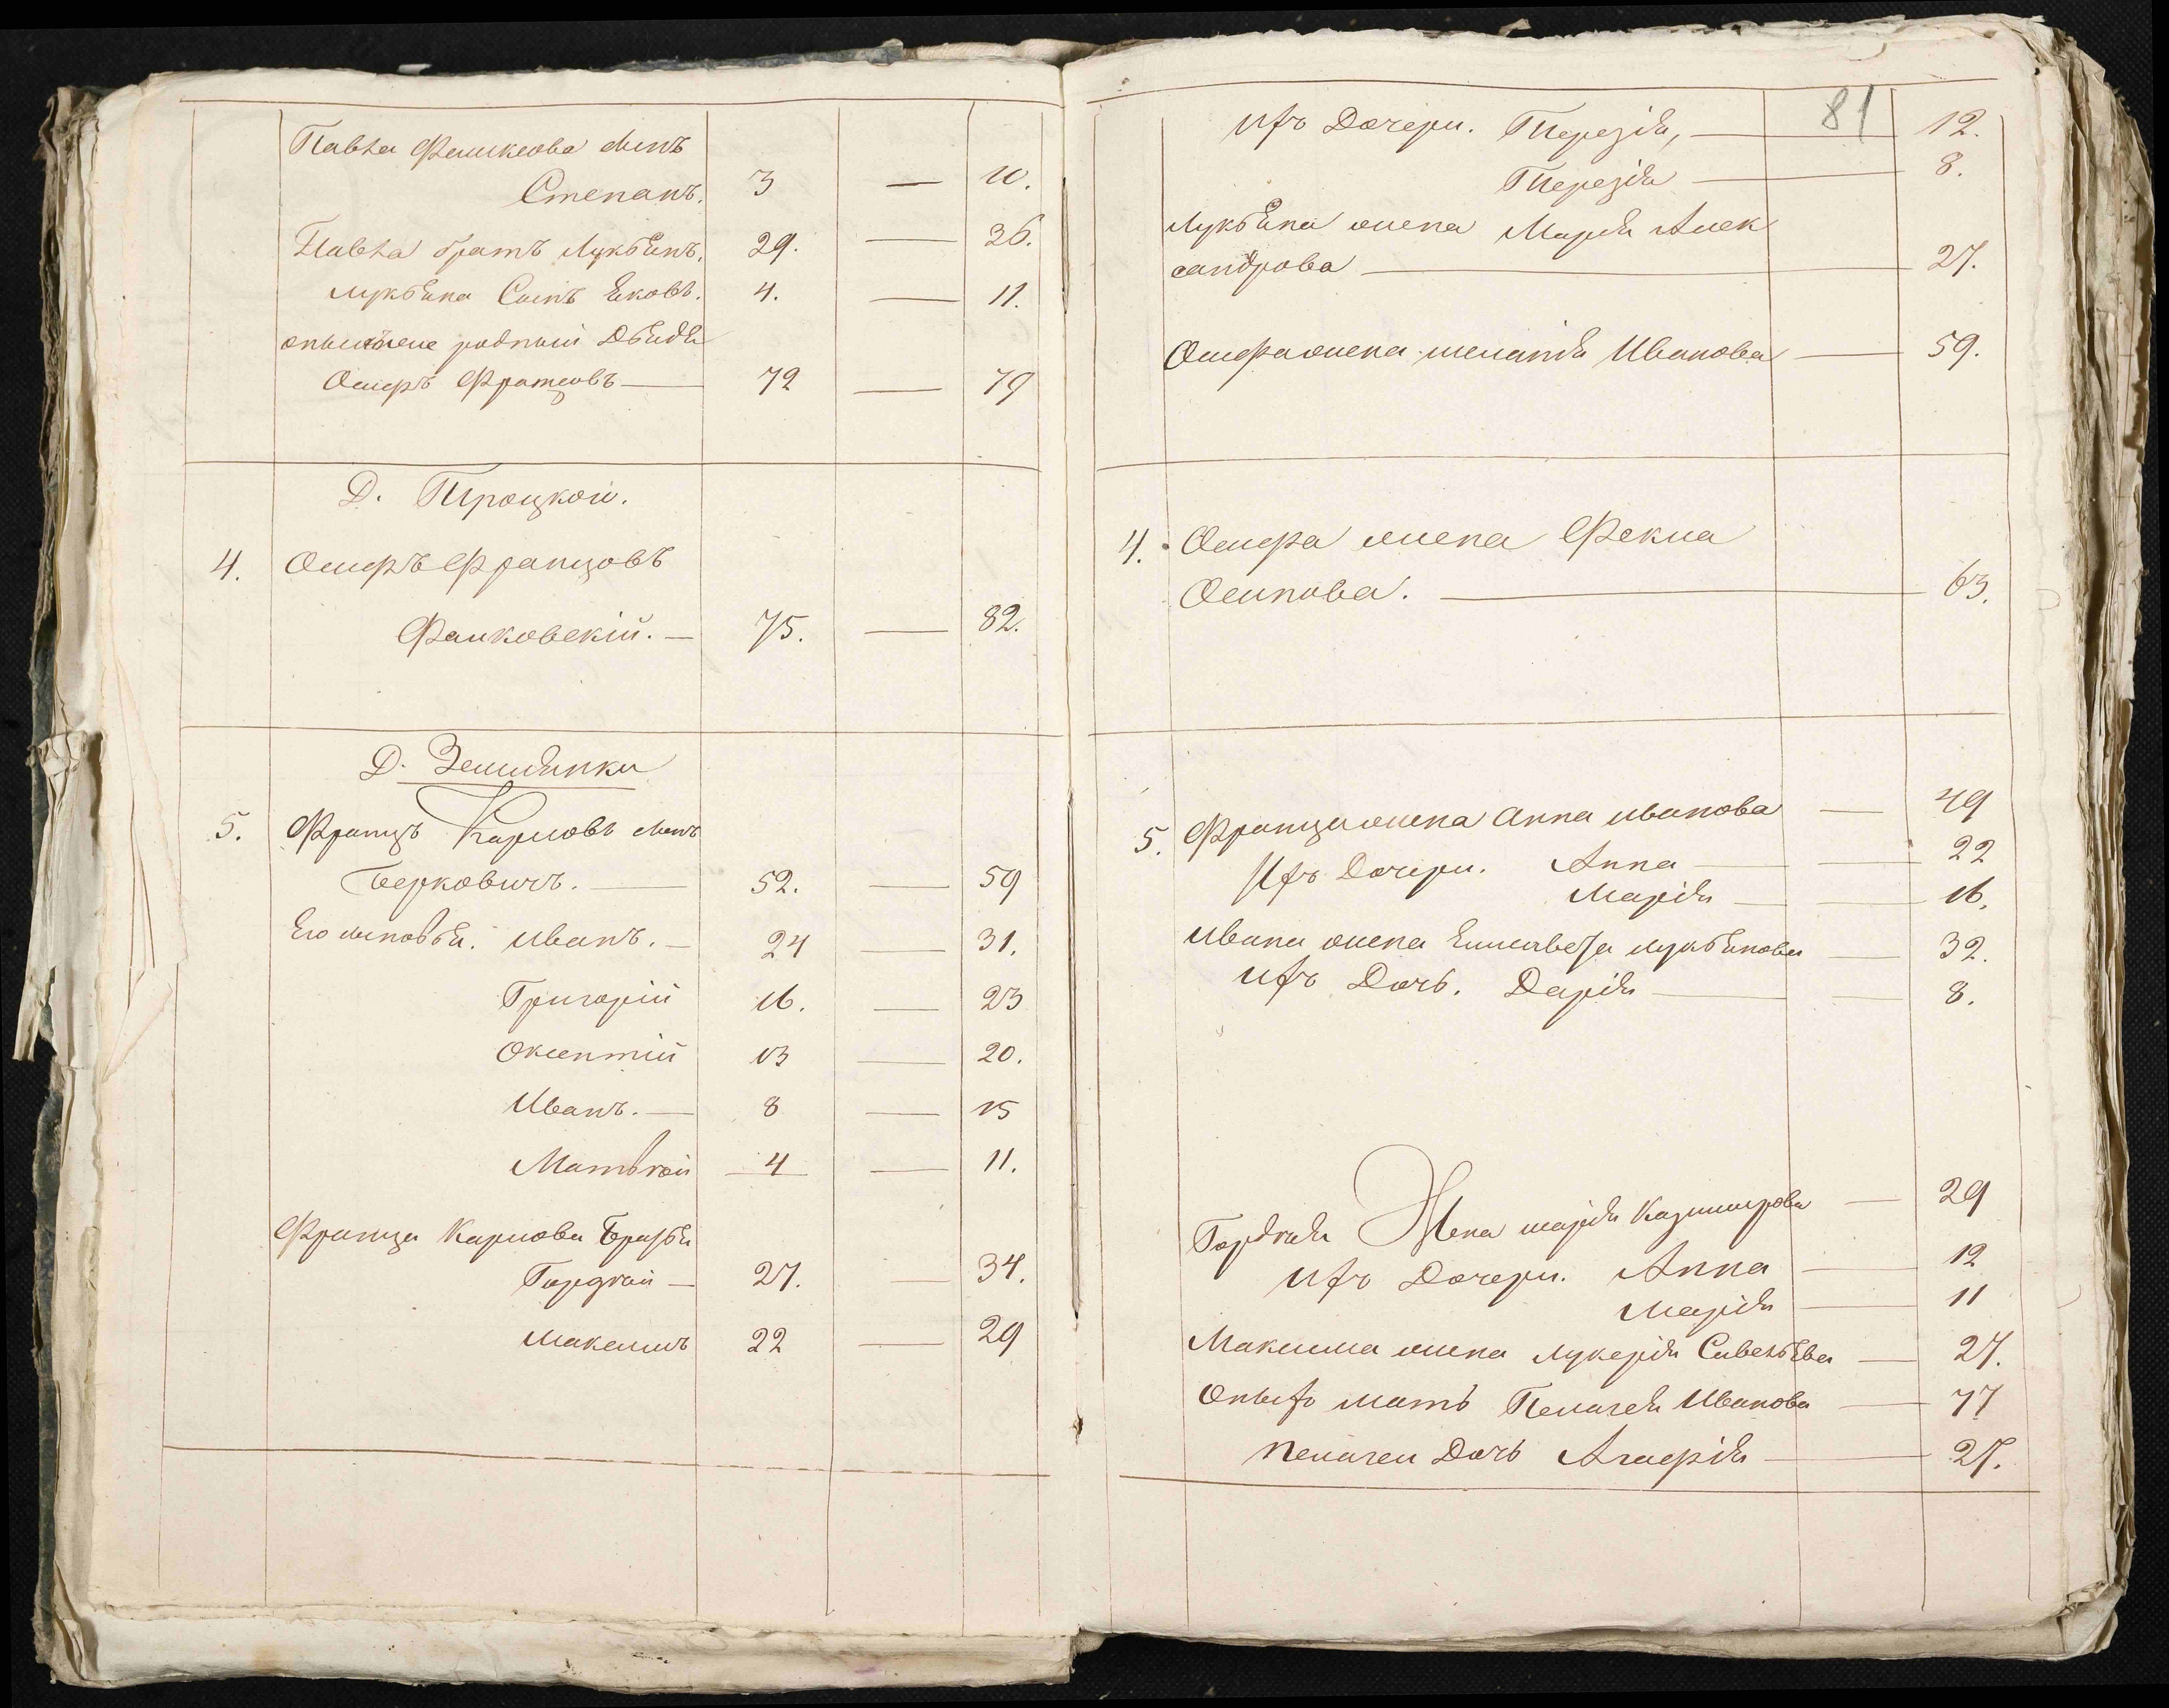 Павла Фашкова сынъ
Степанъ. 3 — 10.
Павла братъ Лукьянъ. 29. — 36.
Лукьяна Сынъ Яковъ. 4. — 11.
родный Дядя
Осифъ Францовъ — 72 — 79
Д. Троцкой.
4. Осифъ Францовъ
Фанковскій. — 75. — 82.
Д.
5. Францъ Карловъ сынъ
Берковичъ. — 52. — 59
Его сыновья. Иванъ. — 24 — 31.
Григорій 16. — 23
Оксентій 13 — 20.
Иванъ. — 8 — 15
Матвѣй — 4 — 11.
Франца Карлова Братья
Гордѣй — 27. — 34.
Максимъ 22 — 29
81
Ихъ Дочери. Терезія, — 12.
Терезія — 8.
Лукьяна жена Марья Алек
сандрова — 27.
Осифа жена Меланья Иванова — 59.
4. Осифа жена Фекла
Осипова. — 63.
5. Франца жена Анна Иванова — 49
Ихъ Дочери. Анна — 22
Марья — 16.
Ивана жена Елисавета Лукьянова — 32.
Ихъ Дочь. Дарья — 8.
Гордѣя Жена Марья Казимирова — 29
Ихъ Дочери. Анна — 12
Марья — 11
Максима жена Лукерья Савельева — 27.
Оныхъ мать Пелагея Иванова — 77
Пелагеи Дочь Агафья — 27.